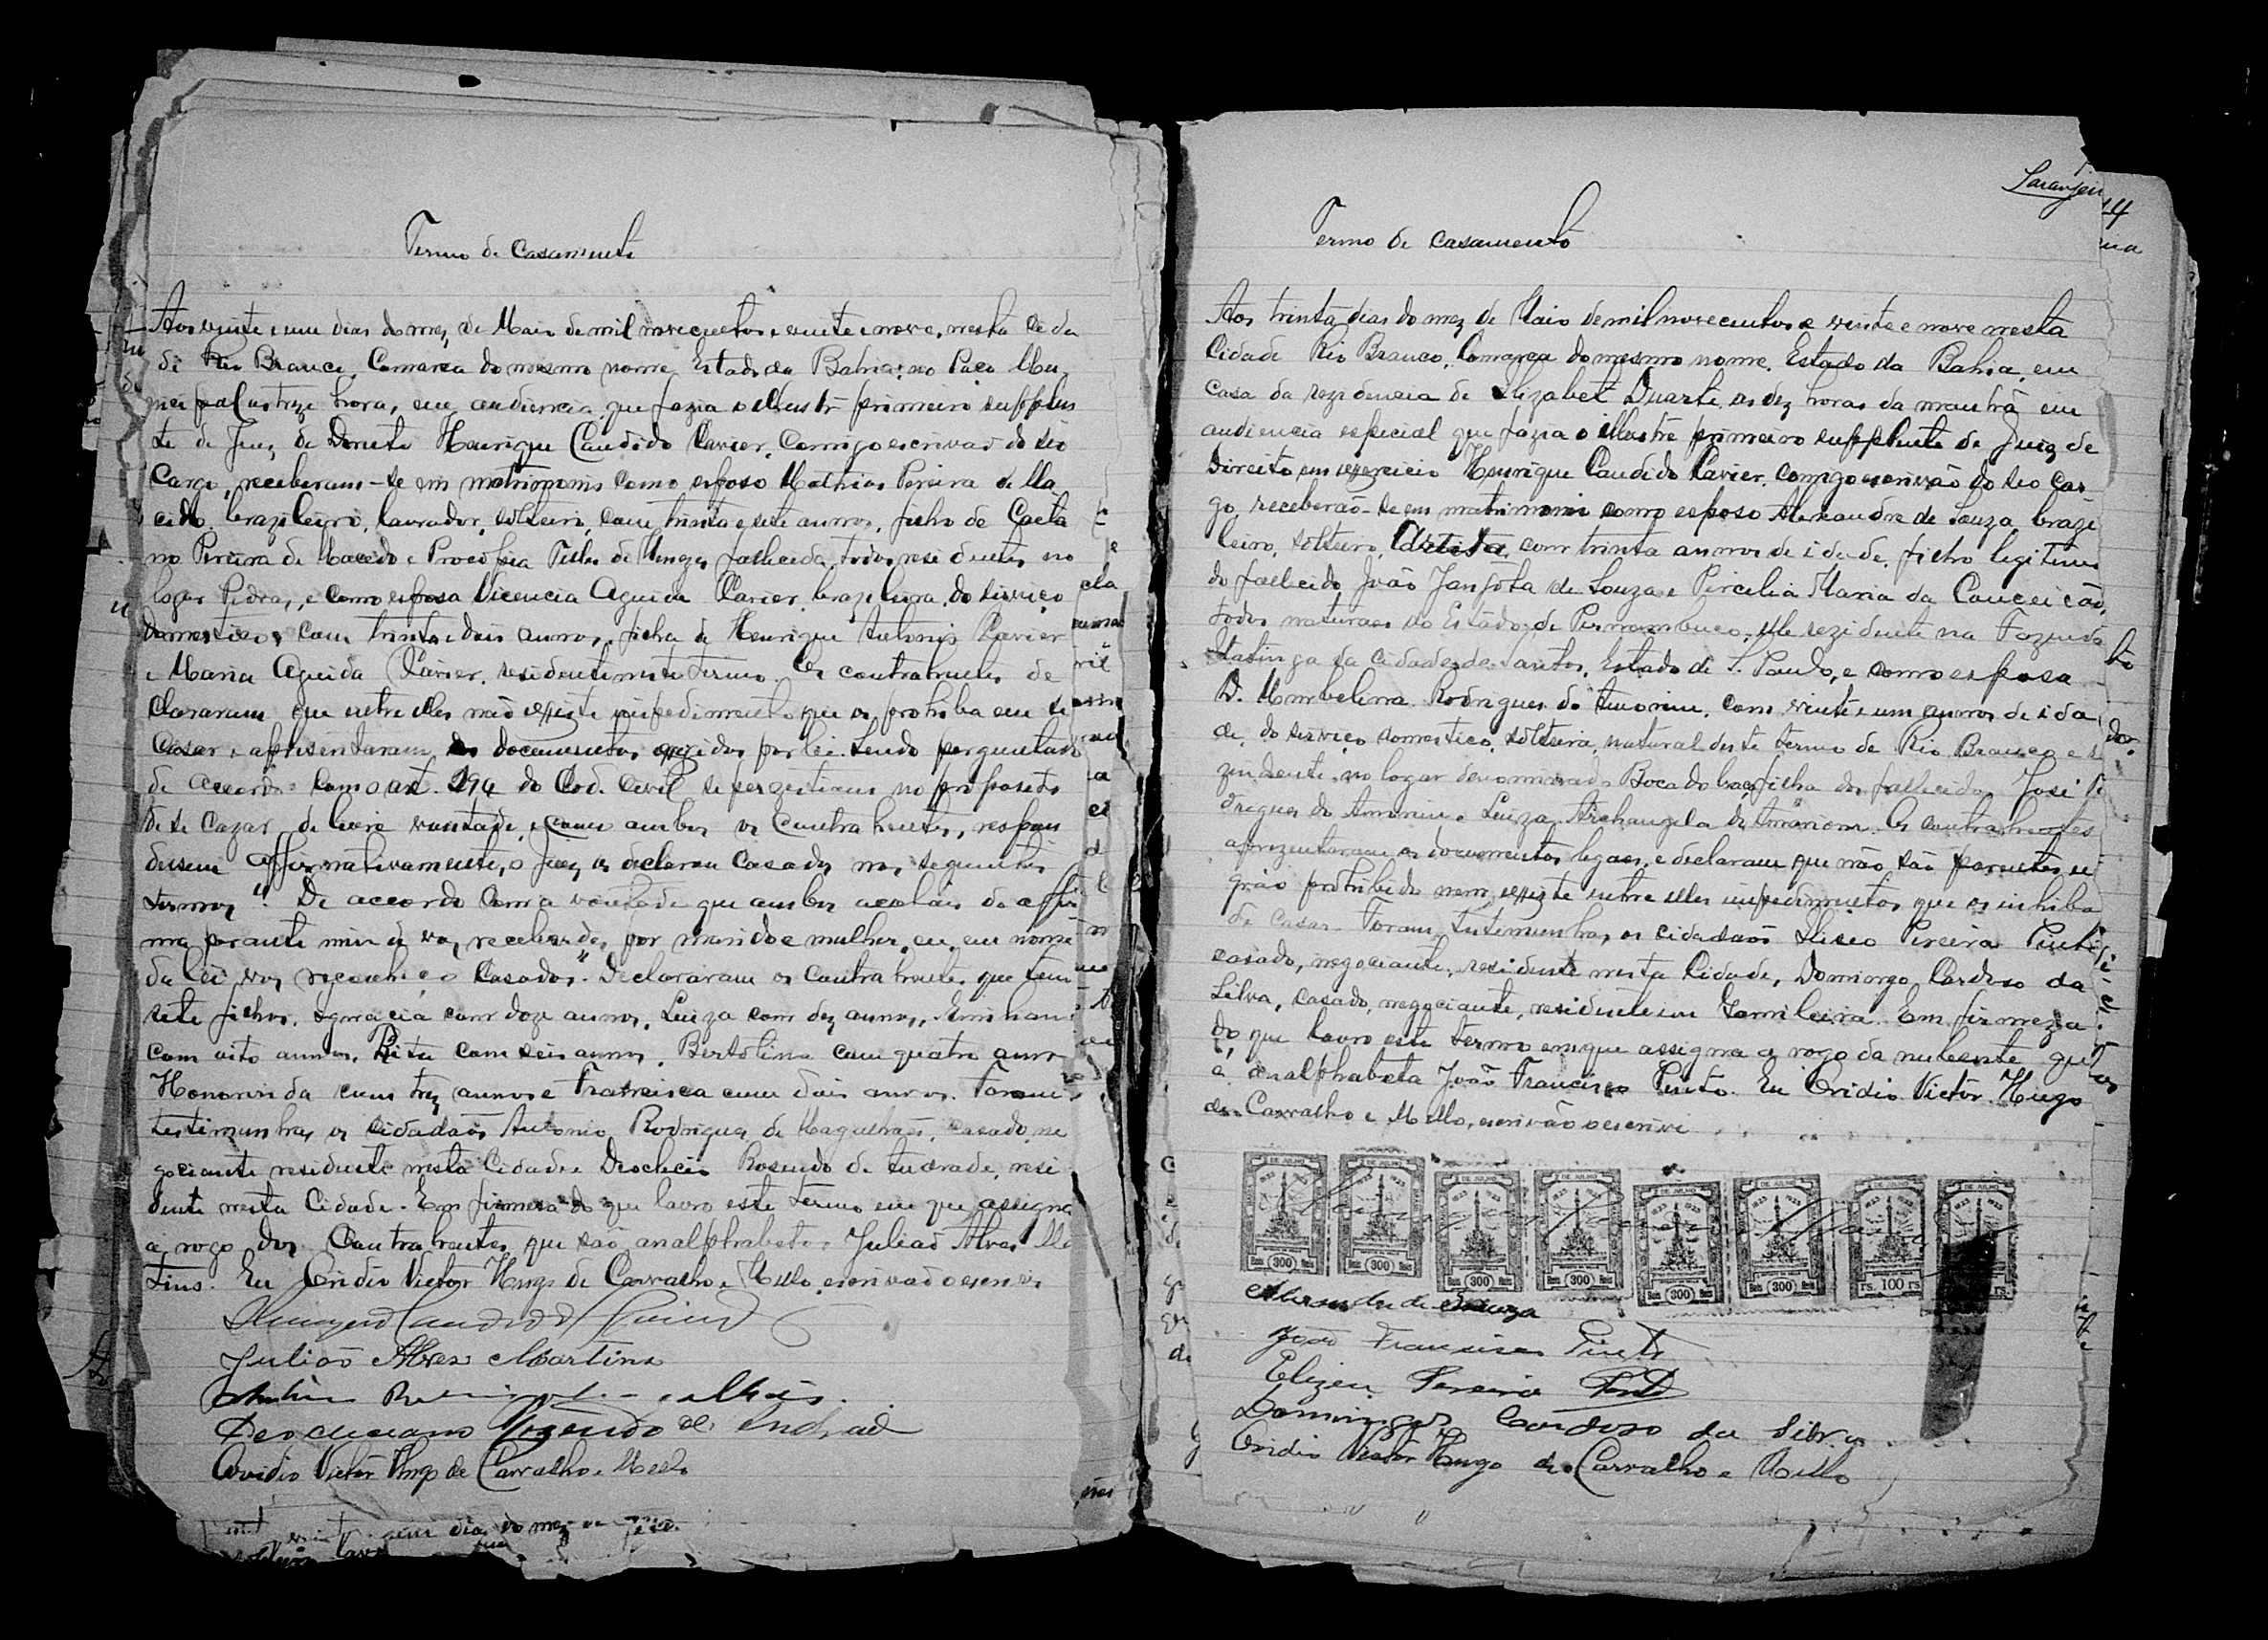 Termo de Casamento
Aos vinte e um dias do mez de Maio de mil novecentos e vinte e nove, nesta Cida
de Rio Branco, Comarca do mesmo nome, Estado da Bahia, no Paço Mu
nicipal as treze hora, em audiencia que fazia o illustre primeiro supplen
te de Juiz de Direito Henrique Candido Xavier, comigo escrivão do seo
cargo, receberam-se em matrimonio como esposo Mathias Pereira de Ma
cedo, brazileiro, lavrador, solteiro, com trinta e sete annos, filho de Caeta
no Pereira de Macedo e Procopia Telles de Menezes fallecida, todos residentes no
logar Pedras, e como esposa Vicencia Agueda Xavier, brazileira, do serviço
domestico, com trinta e dois annos, filha de Henrique Antonio Xavier
e Maria Agueda Xavier, residente neste termo. Os contrahentes de
clararam que entre elles não existe impedimento que os prohiba em se
casar e apresentaram os documentos exigidos por lei. Sendo perguntado
de accordo com o art. 194 do Cod. Civil se persistiam no proposito
de se cazar de livre vontade, e como ambos os contrahentes, respon
dessem affirmativamente, o Juiz os declarou casados nos seguintes
termos ". De accordo com a vontade que ambos acabais de affir
mar perante mim de vos receberdes por marido e mulher, eu, em nome
da lei vos reconheço casados". Declararam os contrahentes que tem
sete filhos, Ignacia com doze annos, Luiza com dez annos,
com oito annos, Rita com seis annos, Bertolina com quatro anno
Honorinda com trez annos e Francisca com dois annos. Foram
testimunhas os cidadãos Antonio Rodrigues de Magalhães, casado, ne
gociante residente nesta Cidade e Rosendo de Andrade, resi
dente nesta Cidade. Em firmeza do que lavro este termo em que assigna
a rogo dos contrahentes que são analphabetos Julião Alves Mar
tins. Eu Ovidio Victor Hugo de Carvalho e Mello, escrivão o escrevi
Henrique Candido Xavier
Julião Alves Martins
Deocleciano Rozendo de Andrad
Ovidio Victor Hugo de Carvalho e Mello
dias do mez de
Laranjei
14
Termo de casamento
Aos trinta dias do mez de Maio de mil novecentos e vinte e nove nesta
Cidade Rio Branco, Comarca do mesmo nome, Estado da Bahia, em
casa da rezidencia de Elizabet Duarte, as dez horas da manhã em
audiencia especial que fazia o illustre primeiro supplente de Juiz de
Direito em exercicio Henrique Candido Xavier, comigo escrivão do seo car
go, receberão-se em matrimonio como esposo Alexandre de Souza, brazi
leiro, solteiro, Artista, com trinta annos de idade, filho legitimo
do fallecido João de Souza e Maria da Conceição,
todos naturaes do Estado de Pernambuco, elle rezidente na Fazenda
Itatinga da cidade de Santos, Estado de S. Paulo, e como esposa
D. Umbelina Rodrigues de Amorim, com vinte e um annos de ida
de, do serviço domestico, solteira, natural deste termo de Rio Branco e re
zidente no logar denominado Boca do filha dos fallecidos José Ro
drigues de Amorim e Luiza Archangela de Amorim. Os contrahentes
aprezentaram os documentos legaes, e declaram que não são parentes, em
gráo prohibido nem existe entre elles impedimentos que os inhiba
de casar. Foram testimunhas os cidadãos Eliseo Pereira Pinto
casado, negociante, residente nesta Cidade, Domingo Cardoso da
Silva, casado, negociante, residente em Gamileira. Em firmeza
do que lavro este termo em que assigna a rogo da nubente que
é analphabeta João Francisco Pinto. Eu Ovidio Victor Hugo
de Carvalho e Mello, escrivão o escrevi
2 DE JULHO
1823 1923
Reis 300 Reis
Reis 300 Reis
Reis 300 Reis
Reis 300 Reis
Reis 300 Reis
Reis 300 Reis
rs. 100 rs.
Alexandre de Souza
João Francisco Pinto
Elizeu Pereira Pinto
Domingos Cardoso da Silva
Ovidio Victor Hugo de Carvalho e Mello